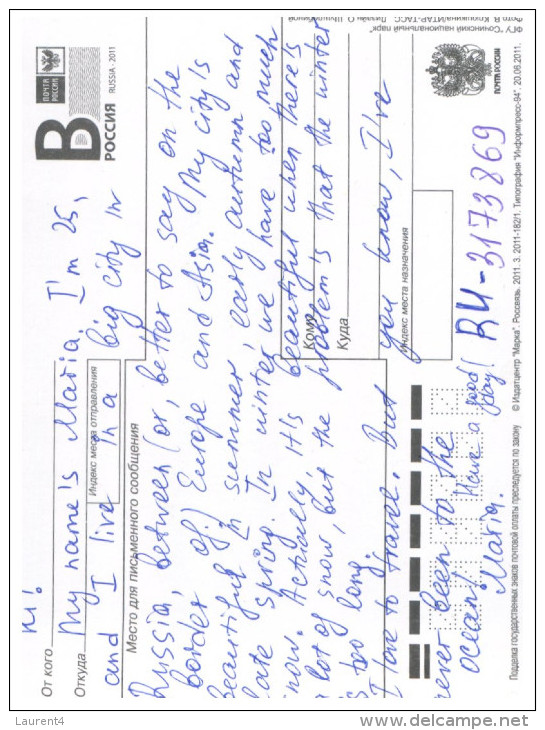 Hi!
От кого
My name's Maria. I'm 25,
Откуда
Индекс места отправления
and I live in a big city in
Место для письменного сообщения
Russia, between (or, better to say on the
border of) Europe and Asia. My city is
beautiful in summer, early autumn and
late spring. In winter we have too much
snow. Actually it's beautiful when there's
a lot of snow, but the problem's that the winter
is too long.
I love to travel. But you know, I've
never been to the
ocean! Have a good day!
Maria.
B
ПОЧТА РОССИИ
РОССИЯ RUSSIA - 2011
Кому
Куда
Индекс места назначения
RU-3173869
ПОЧТА РОССИИ
ФГУ "Сочинский национальный парк"
Подделка государственных знаков почтовой оплаты преследуется по закону
© Издатцентр "Марка". Россвязь. 2011. З. 2011-182/1. Типография "Информпресс-94". 20.06.2011.
Laurent4
www.delcampe.net